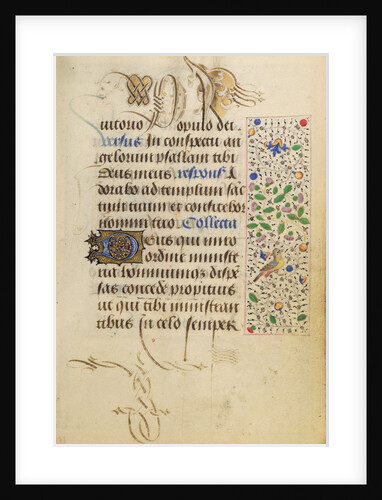 uitorio Populo dei
Versus In conspectu an
gelorum psallam tibi
Deus meus respons A
dorabo ad templum sāc
tum tuum et confitebor
nomini tuo Collecta
Deus qui miro
ordine ministe
ria hominumqz dispē
sas concede propitius
ut qui tibi ministran
tibus in celo semper